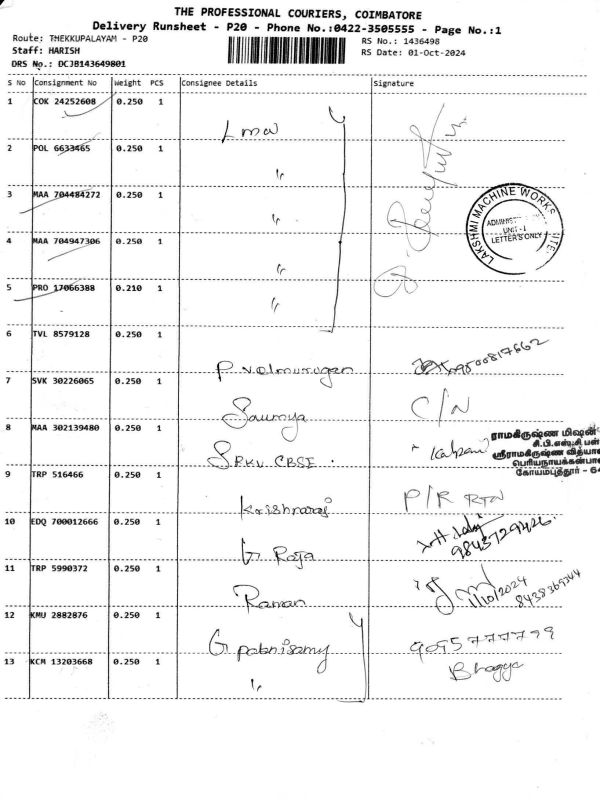 THE PROFESSIONAL COURIERS, COIMBATORE
Delivery Runsheet - P20 - Phone No.:0422-3505555 - Page No.:1
Route: THEKKUPALAYAM - P20
RS No.: 1436498
Staff: HARISH
RS Date: 01-Oct-2024
DRS No.: DCJB143649801
S No Consignment No Weight PCS Consignee Details Signature
1 COK 24252608 0.250 1
Lmw
2 POL 6633465 0.250 1
"
3 MAA 704484272 0.250 1
"
4 MAA 704947306 0.250 1
"
5 PRO 17066388 0.210 1
"
LAKSHMI MACHINE WORKS
UNIT-I
LETTERS ONLY
6 TVL 8579128 0.250 1
P. velmurugan 9500817662
7 SVK 30226065 0.250 1
Soumya C/N
8 MAA 302139480 0.250 1
SRKV. CBSE
ராமகிருஷ்ண மிஷன்
சி.பி.எஸ்.சி பள்
ஸ்ரீராமகிருஷ்ண வித்யா
பெரியநாயக்கன்பா
கோயம்புத்தூர் - 64
9 TRP 516466 0.250 1
Krishnaraj P/R RTN
10 EDQ 700012666 0.250 1
G. Raja 9843729426
11 TRP 5990372 0.250 1
Raman 1/10/2024
8438369344
12 KMU 2882876 0.250 1
G. palanisamy 9095777799
Bhagya
13 KCM 13203668 0.250 1
"